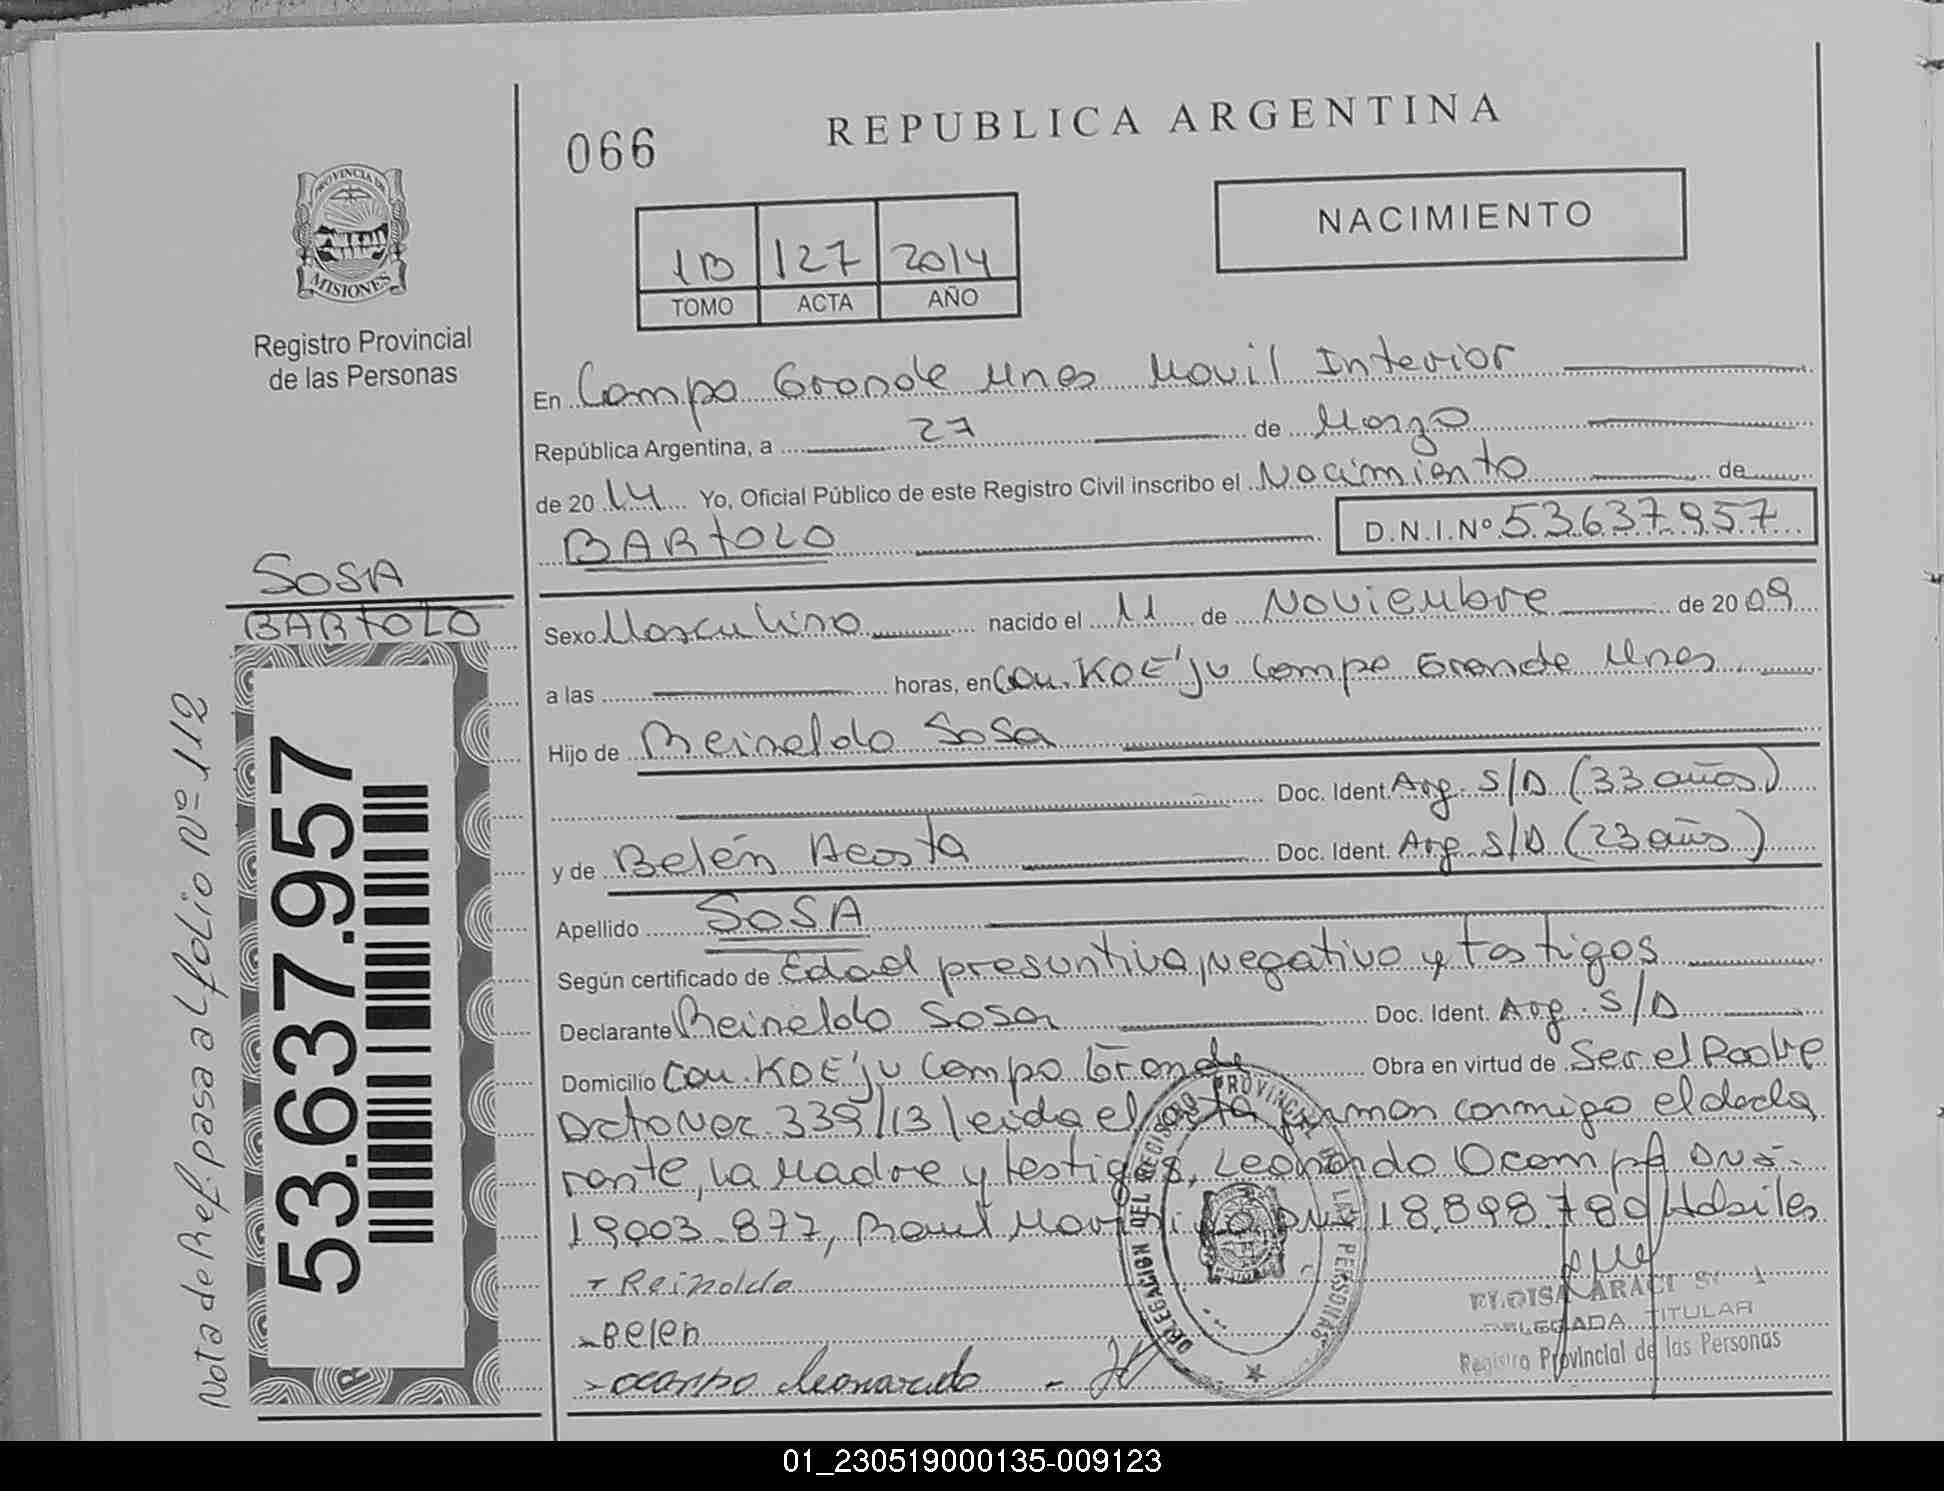 066
REPUBLICA ARGENTINA
NACIMIENTO
PROVINCIA DE
MISIONES
Registro Provincial
de las Personas
1B 127 2014
TOMO ACTA AÑO
En Campo Grande Mnes Movil Interior
República Argentina, a 27 de Marzo
de 2014 Yo, Oficial Público de este Registro Civil inscribo el Nacimiento de
BARTOLO D.N.I.Nº 53637957
SOSA
BARTOLO
Sexo Masculino nacido el 11 de Noviembre de 2009
a las horas, en Com. KOE'JU Campo Grande Mnes
Hijo de Reinaldo Sosa
Doc. Ident. Arg. S/D (33 años)
y de Belén Acosta Doc. Ident. Arg. S/D (23 años)
Apellido SOSA
Según certificado de Edad presuntiva, negativo y testigos
Declarante Reinaldo Sosa Doc. Ident. Arg. S/D
Domicilio Com. KOE'JU Campo Grande Obra en virtud de Ser el Padre
Dcto Nac. 339/13 leida el acta firman conmigo el decla
rante, la Madre y testigos, Leonardo Ocampo DNI
19003.877, Raul DNI 18.898.780 Habiles
Reinaldo
Belen
ocampo leonardo
DELEGACION DEL REGISTRO PROVINCIAL DE LAS PERSONAS
ELOISA ARACI
DELEGADA TITULAR
Registro Provincial de las Personas
53.637.957
Nota de Ref. pasa al folio Nº 112
01_230519000135-009123